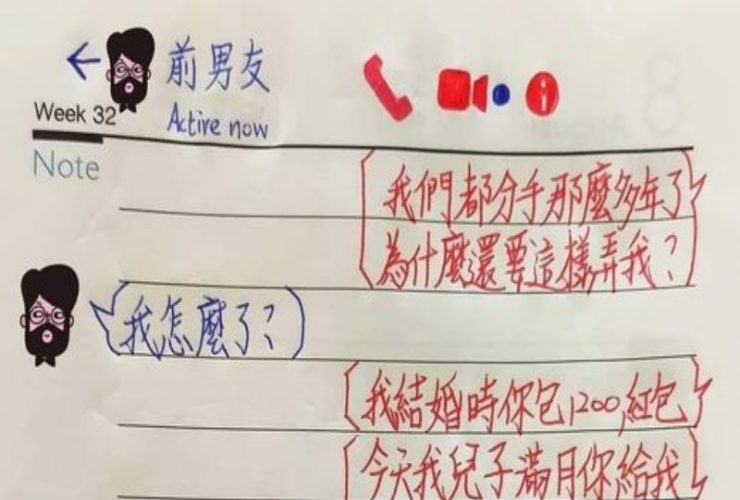 前男友
Active now
Week 32
Note
我們都分手那麼多年了
為什麼還要這樣弄我?
我怎麼了?
我結婚時你包1200紅包
今天我兒子滿月你給我